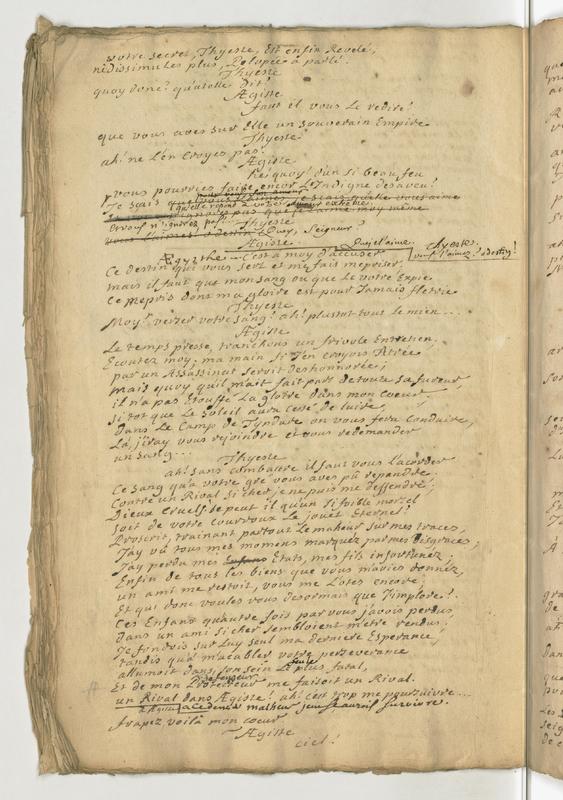 votre secret, Thyeste, est enfin Revelé,
ne dissimulés plus, Pelopée a parlé.
Thyeste
quoy donc! qu'atelle dit!
Ægiste
faut il vous Le redire!
que vous avés sur Elle un souverain Empire
Thyeste
ah! ne L'en Croyés pas.
Ægiste
hé quoy! d'un si beau feu
vous pourriés faire encor L'Indigne desaveu!
Je sçais
Thyeste
Seigneur
Ægiste
Ouy je l'aime. Thyeste
vous l'aimés! o destin!
Ægysthe C'est a moy d'accuser
Ce destin qui vous sert et me fait mepriser.
mais il faut que mon sang ou que Le votre Expie
Ce mepris dont ma gloire est pour Jamais fletrie
Thyeste
Moy! verser votre sang! ah! plustot tout le mien...
Ægiste
Le temps presse, tranchons un frivole Entretien.
Ecoutés moy, ma main si J'en croyois Atrée
par un Assassinat seroit deshonnorée;
mais quoy qu'il m'ait fait part de toute sa fureur
il n'a pas Etouffé La gloire dans mon coeur
si tot que Le soleil aura cessé de luire,
dans Le Camp de Tyndare on vous fera Conduire,
La, j'iray vous rejoindre et vous redemander
un sang...
Thyeste
ah! sans combattre il faut vous l'acorder
Ce sang qu'a votre gré vous avés pû repandre,
Contre un Rival si cher je ne puis me deffendre;
Dieux Cruels se peut il qu'un si foible mortel
soit de votre Courroux Le jouet Eternel!
Proscrit, trainant partout Le malheur sur mes traces,
J'ay vû tous mes momens marquez par mes disgraces;
J'ay perdu mes Enfans Etats, mes fils infortunez;
Enfin de tous les biens que vous m'aviés donnéz,
un ami me restoit, vous me L'otés encore;
Et qui donc voulés vous desormais que J'implore!
Ces Enfans qu'autre fois par vous j'avois perdus
dans un ami si cher sembloient m'etre rendus;
Je fondois sur Luy seul ma derniere Esperance,
tandis qu'a m'acabler votre perseverance
allumoit dans son sein Le feu plus fatal,
Et de mon Protecteur defenseur me faisoit un Rival.
un Rival dans Ægiste! ah! c'est trop me poursuivre...
a ce dernier malheur je ne sçaurois survivre.
frapez voilà mon coeur
Ægiste
ciel!